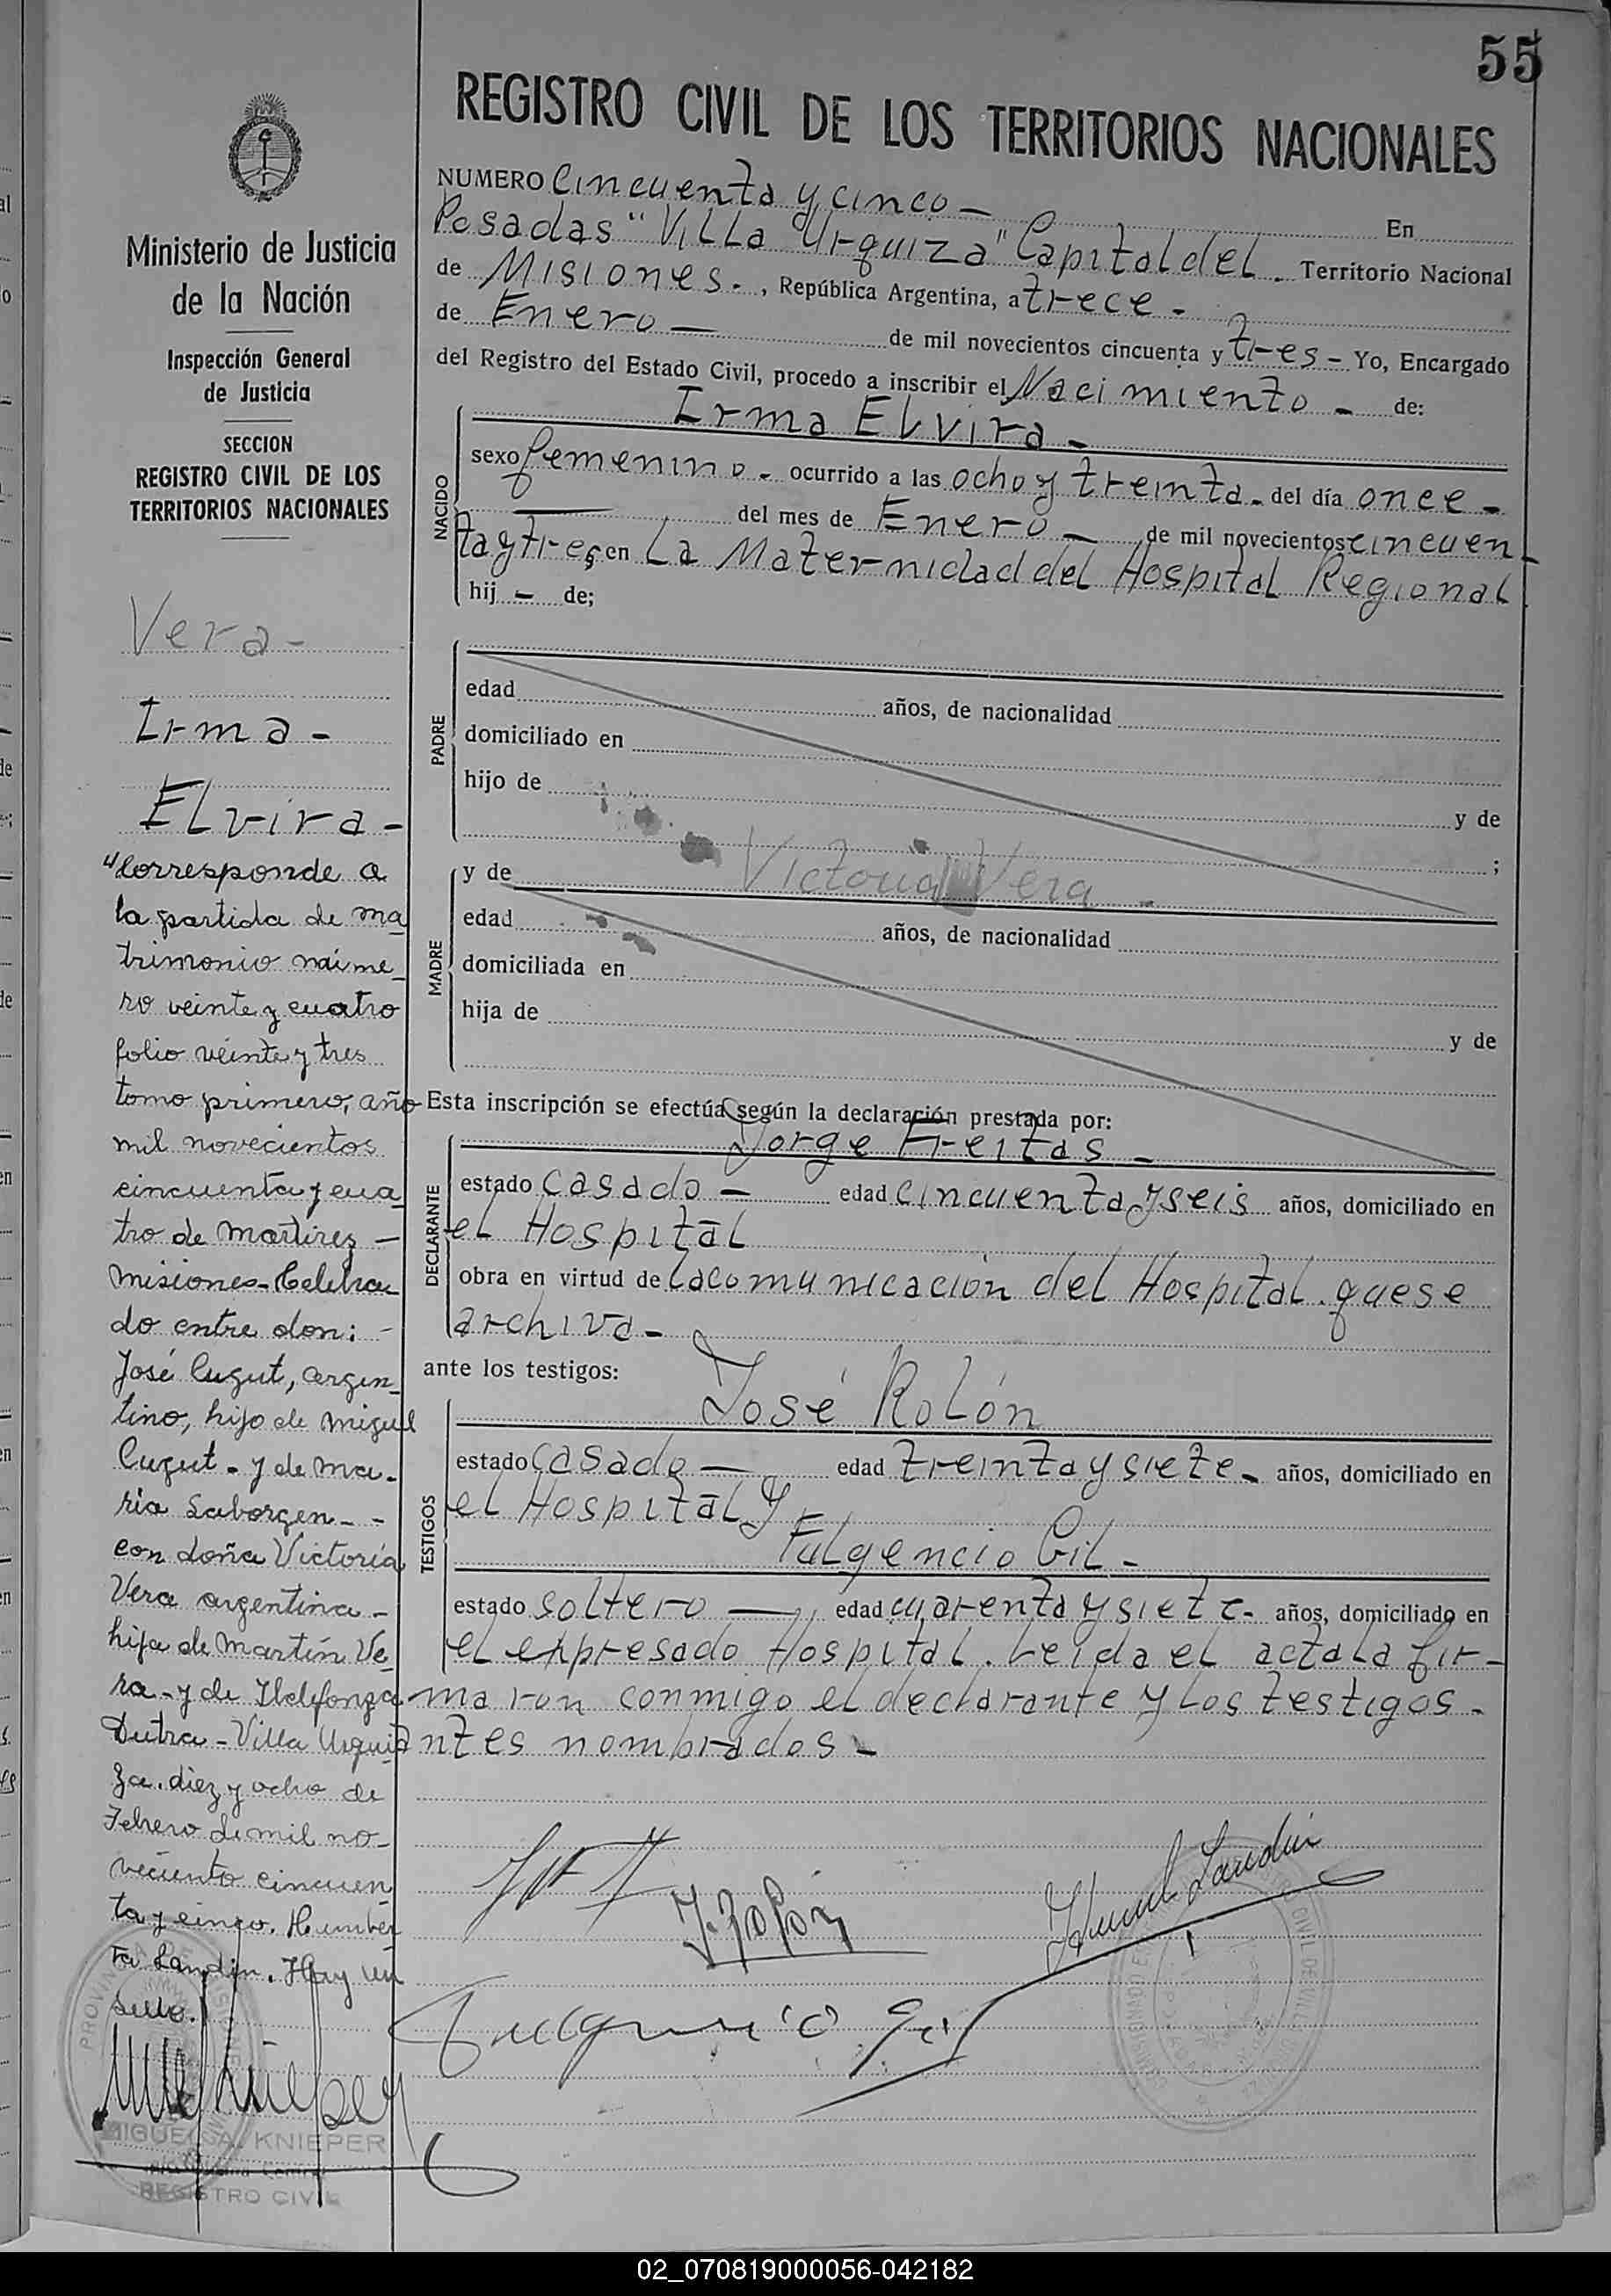 55
REGISTRO CIVIL DE LOS TERRITORIOS NACIONALES
Ministerio de Justicia
de la Nación
Inspección General
de Justicia
SECCION
REGISTRO CIVIL DE LOS
TERRITORIOS NACIONALES
Vera -
Irma -
Elvira -
"Corresponde a
la partida de ma
trimonio núme
ro veinte y cuatro
folio veinte y tres
tomo primero, año
mil novecientos
cincuenta y cua
tro de Martires -
Misiones - Celebra
do entre don: -
José Cugut, argen
tino, hijo de Miguel
Cugut - y de Ma-
ria Saborgen - -
con doña Victoria
Vera argentina -
hija de Martín Ve
ra - y de Ildefonza
Dutra - Villa Urqui
za. diez y ocho de
Febrero de mil no-
veciento cincuen
ta y cinco. Humber
to Landin. Hay un
sello.
MIGUEL A. KNIEPER
REGISTRO CIVIL
NUMERO Cincuenta y cinco - En
Posadas "Villa Urquiza" Capital del . Territorio Nacional
de Misiones. , República Argentina, a trece -
de Enero - de mil novecientos cincuenta y tres - Yo, Encargado
del Registro del Estado Civil, procedo a inscribir el Nacimiento - de:
NACIDO
Irma Elvira -
sexo femenino - ocurrido a las ocho y treinta - del día once -
del mes de Enero - de mil novecientos cincuen
ta y tres, en La Maternidad del Hospital Regional
hij - de;
PADRE
edad años, de nacionalidad
domiciliado en
hijo de y de
;
MADRE
y de Victoria Vera -
edad años, de nacionalidad
domiciliada en
hija de y de
Esta inscripción se efectúa según la declaración prestada por:
DECLARANTE
Jorge Freitas -
estado Casado - edad cincuenta y seis años, domiciliado en
el Hospital
obra en virtud de la comunicación del Hospital que se
archiva -
ante los testigos:
TESTIGOS
José Rolón
estado Casado - edad treinta y siete - años, domiciliado en
el Hospital y
Fulgencio Gil -
estado soltero - edad cuarenta y siete - años, domiciliado en
el expresado Hospital. Leida el acta la fir-
maron conmigo el declarante y los testigos -
antes nombrados -
J. Rolón
Humb Landin
Fulgencio Gil
02_070819000056-042182